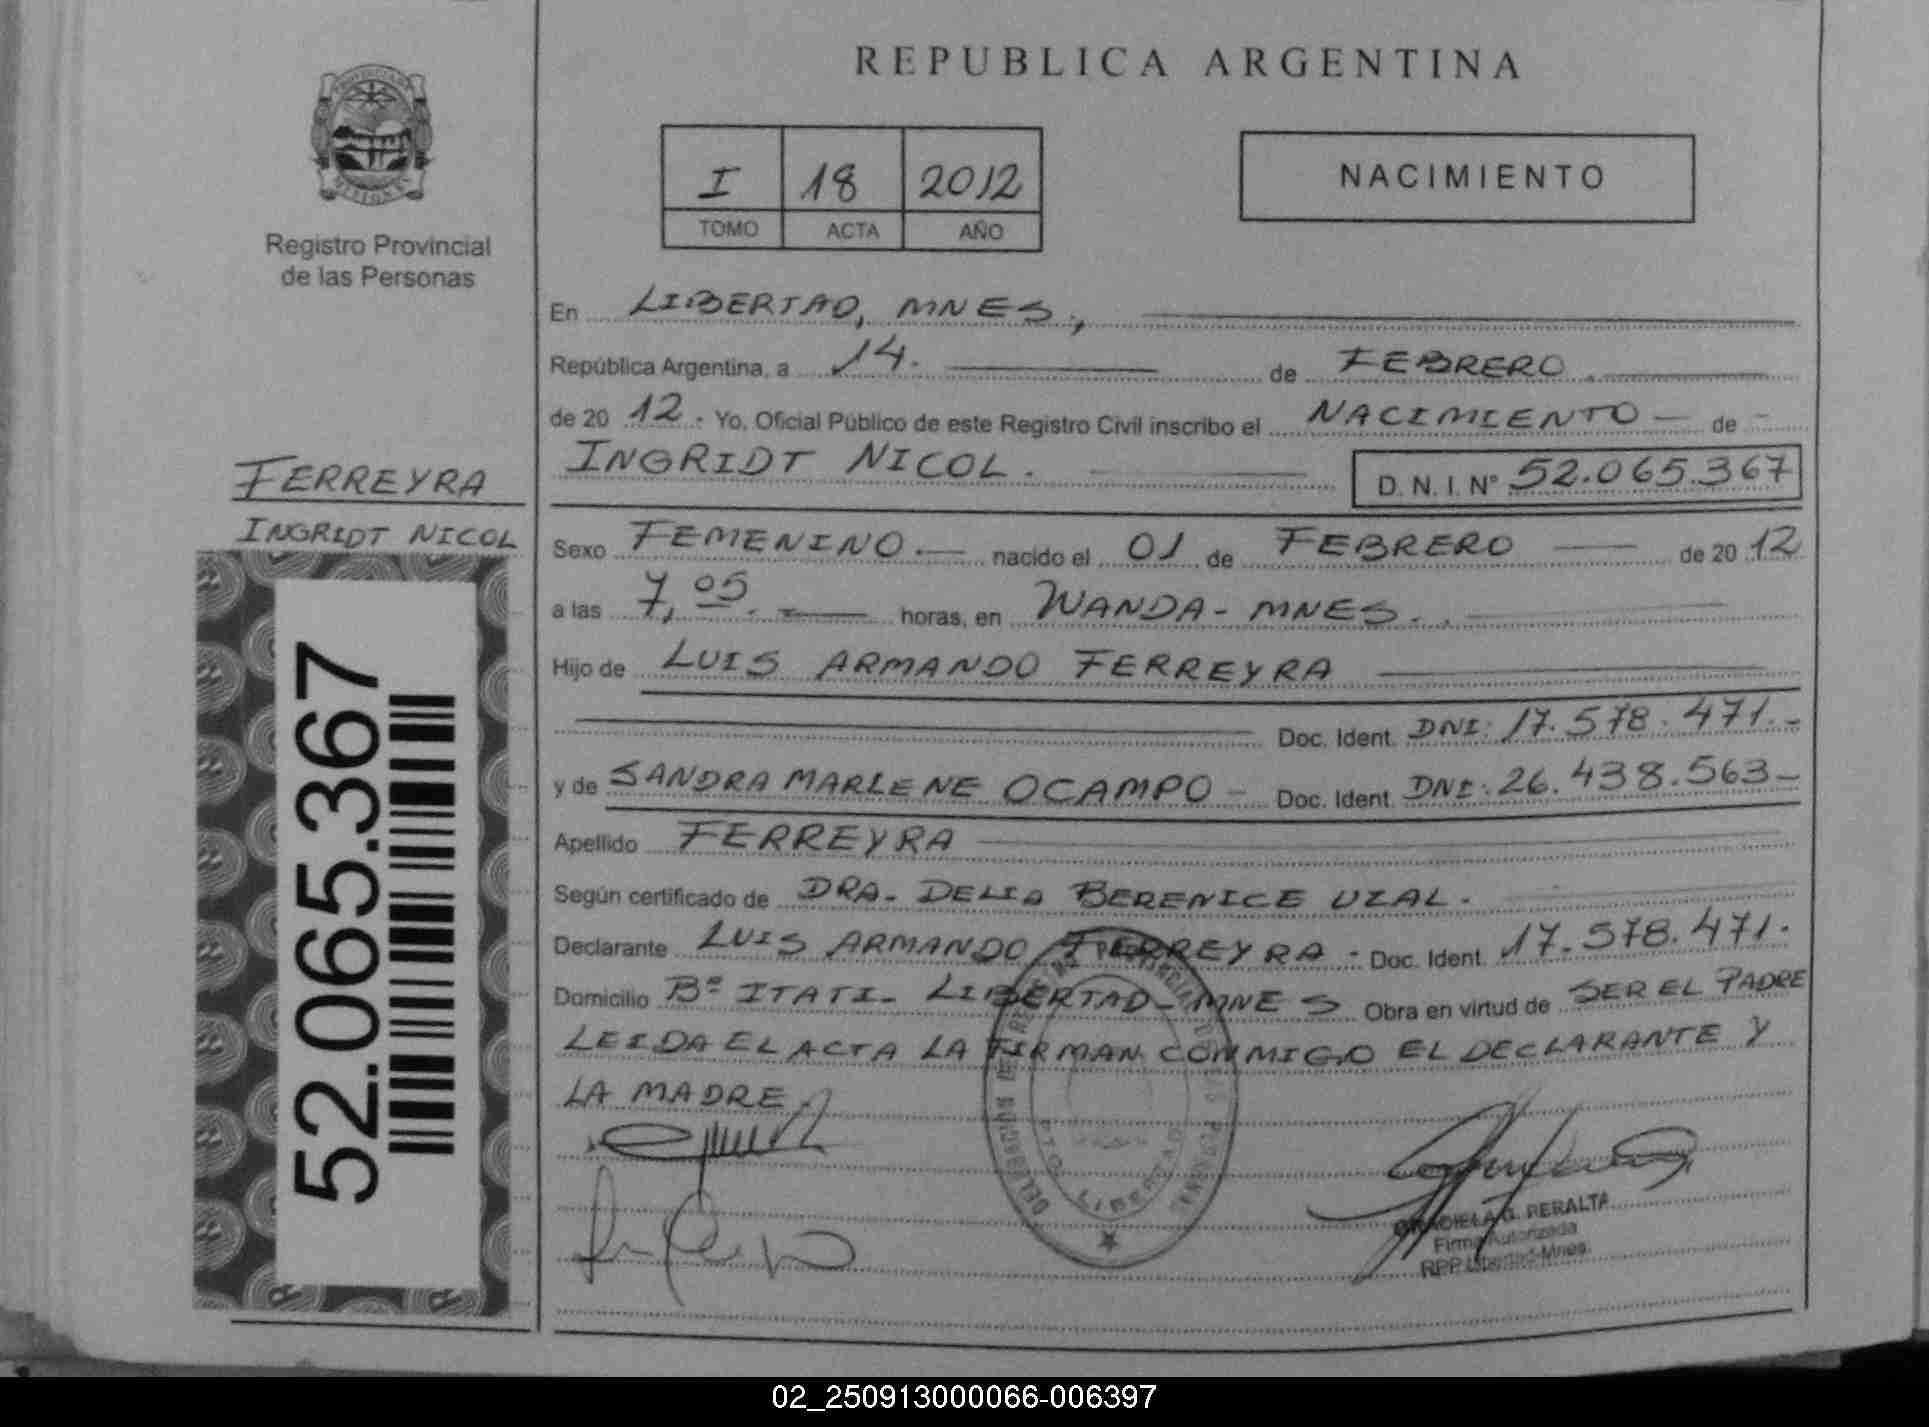 REPUBLICA ARGENTINA
PROVINCIA DE MISIONES
Registro Provincial
de las Personas
I 18 2012
TOMO ACTA AÑO
NACIMIENTO
En LIBERTAD, MNES.,
República Argentina, a 14. de FEBRERO.
de 20 12. Yo, Oficial Público de este Registro Civil inscribo el NACIMIENTO de
INGRIDT NICOL. D. N. I. N° 52.065.367
FERREYRA
INGRIDT NICOL
52.065.367
Sexo FEMENINO. nacido el 01 de FEBRERO de 20 12
a las 7,05. horas, en WANDA - MNES.
Hijo de LUIS ARMANDO FERREYRA
Doc. Ident. DNI: 17.578.471.-
y de SANDRA MARLENE OCAMPO - Doc. Ident. DNI: 26.438.563-
Apellido FERREYRA
Según certificado de DRA. DELIA BERENICE VIAL.
Declarante LUIS ARMANDO FERREYRA - Doc. Ident. 17.578.471.
Domicilio B° ITATI - LIBERTAD - MNES Obra en virtud de SER EL PADRE
LEIDA EL ACTA LA FIRMAN CONMIGO EL DECLARANTE Y
LA MADRE.
GRACIELA G. PERALTA
Firma Autorizada
RPP Libertad-Mnes.
02_250913000066-006397